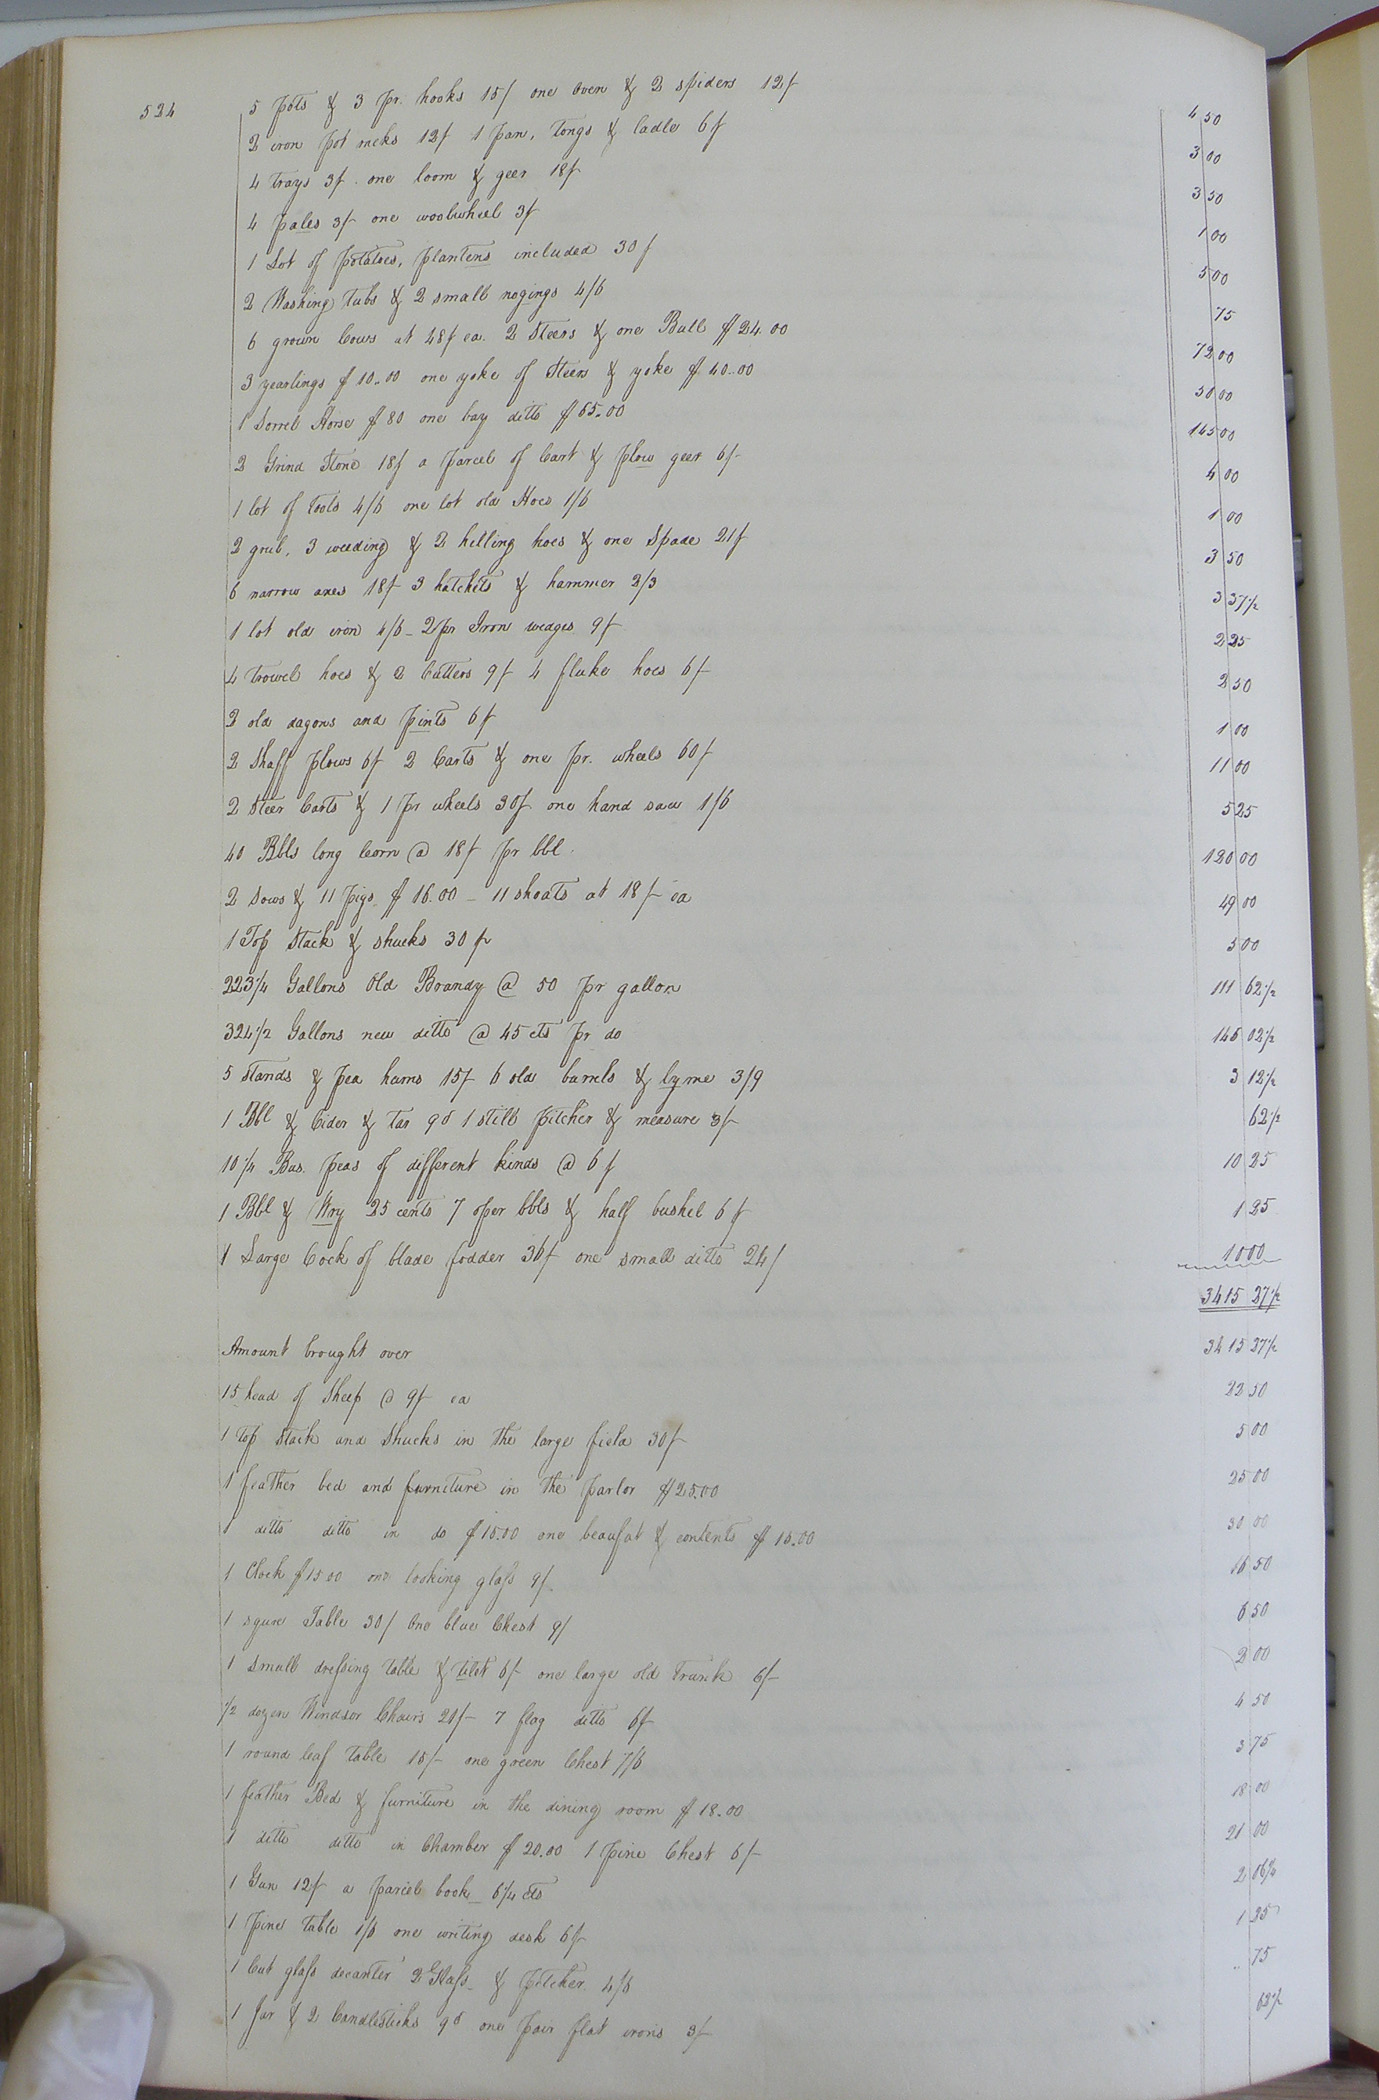 524
5 pots & 3 pr. hooks 15/ one oven & 2 spiders 12/ 4 50
2 iron pot racks 12/ 1 pan, tongs & ladle 6/ 3 00
4 trays 3/ one loom & geer 18/ 3 50
4 pales 3/ one woolwheel 3/ 1 00
1 Lot of potatoes, plantens included 30/ 5 00
2 Washing Tubs & 2 small nogings 4/6 75
6 grown Cows at 48/ ea. 2 Steers & one Bull $24.00 72 00
3 yearlings $10.00 one yoke of Steers & yoke $40.00 50 00
1 Sorrel Horse $80 one bay ditto $65.00 145 00
2 Grind Stone 18/ a parcel of Cart & plow geer 6/ 4 00
1 lot of Tools 4/6 one lot old Hoes 1/6 1 00
2 grub, 3 weeding & 2 hilling hoes & one Spade 21/ 3 50
6 narrow axes 18/ 3 hatchets & hammer 2/3 3 37 1/2
1 lot old iron 4/6 - 2 pr Iron wedges 9/ 2 25
4 Trowel hoes & 2 Cutters 9/ 4 fluke hoes 6/ 2 50
2 old dagons and pints 6/ 1 00
2 Shaff plows 6/ 2 Carts & one pr. wheels 60/ 11 00
2 Steer Carts & 1 pr wheels 30/ one hand saw 1/6 5 25
40 Bbls long Corn @ 18/ pr bbl. 120 00
2 Sows & 11 pigs $16.00 - 11 shoats at 18/ ea 49 00
1 Top Stack & shucks 30/ 5 00
223 1/4 Gallons Old Brandy @ 50 pr gallon 111 62 1/2
324 1/2 Gallons new ditto @ 45 cts pr do 146 02 1/2
5 stands & pea hams 15/ 6 old barrels & lyme 3/9 3 12 1/2
1 Bbl & Cider & Tar 9d 1 still pitcher & measure 3/ 62 1/2
10 1/4 Bus. peas of different kinds @ 6/ 10 25
1 Bbl & Wry 25 cents 7 oper bbls & half bushel 6/ 1 25
1 Large Cock of blade fodder 36/ one small ditto 24/ 10 00
3415 27 1/2
Amount brought over 3415 27 1/2
15 head of Sheep @ 9/ ea 22 50
1 Top stack and Shucks in the large field 30/ 5 00
1 feather bed and furniture in the parlor $25.00 25 00
1 ditto ditto in do $15.00 one beaufat & contents $15.00 30 00
1 Clock $15.00 one looking glass 9/ 16 50
1 squre Table 30/ One blue Chest 9/ 6 50
1 small dressing table & tilet 6/ one large old Trunk 6/ 2 00
1/2 dozen Windsor Chairs 21/ 7 flag ditto 6/ 4 50
1 round leaf table 15/ one green Chest 7/6 3 75
1 feather Bed & furniture in the dining room $18.00 18 00
1 ditto ditto in Chamber $20.00 1 pine Chest 6/ 21 00
1 Gun 12/ a parcel book 6 1/4 cts 2 06 1/4
1 pine table 1/6 one writing desk 6/ 1 25
1 Cut glass decanter 2 Glass & pitcher 4/6 75
1 Jar & 2 Candlesticks 9d one pair flat irons 3/ 62 1/2